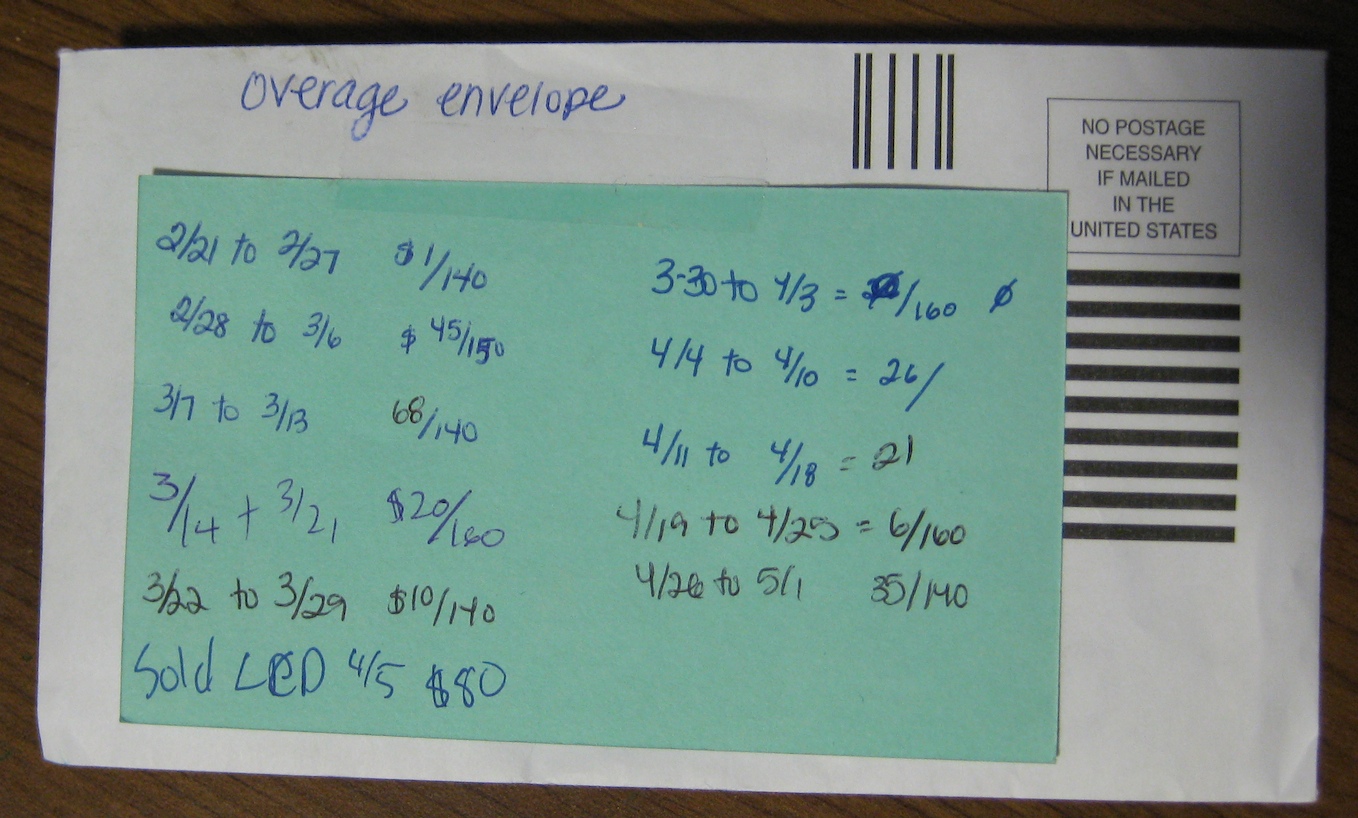 Overage envelope
NO POSTAGE
NECESSARY
IF MAILED
IN THE
UNITED STATES
2/21 to 2/27 $1/140
2/28 to 3/6 $45/150
3/7 to 3/13 68/140
3/14 + 3/21 $20/160
3/22 to 3/29 $10/140
Sold LCD 4/5 $80
3-30 to 4/3 = /160 ø
4/4 to 4/10 = 26/
4/11 to 4/18 = 21
4/19 to 4/25 = 6/160
4/26 to 5/1 35/140